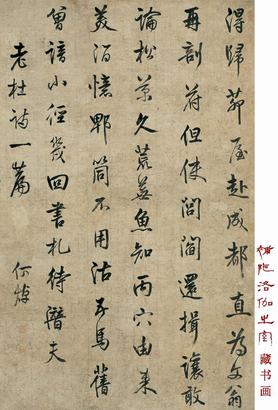 得歸茅屋赴成都直為文翁
再剖符但使閭閻還揖讓敢
論松菊久荒蕪魚知丙穴由來
美酒憶郫筒不用沽五馬舊
曾諳小徑幾回書札待潛夫
老杜詩一篇
何焯
補陀洛伽之室藏书画